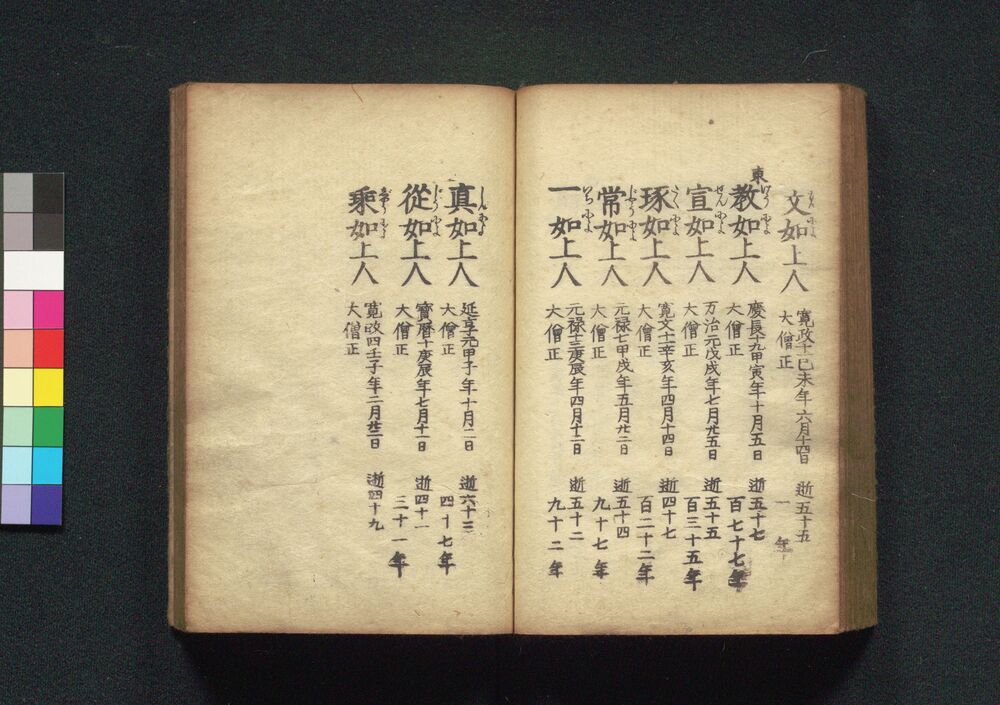 文如上人 寛政十一己未年六月十四日 逝五十五
大僧正 一年
東
教如上人 慶長十九甲寅年十月五日 逝五十七
大僧正 百七十七年
宣如上人 万治元戊戌年七月廿五日 逝五十五
大僧正 百三十五年
琢如上人 寛文十一辛亥年四月十四日 逝四十七
大僧正 百二十二年
常如上人 元禄七甲戌年五月廿二日 逝五十四
大僧正 九十七年
一如上人 元禄十三庚辰年四月十二日 逝五十二
大僧正 九十二年
真如上人 延享元甲子年十月二日 逝六十三
大僧正 四十七年
從如上人 寳暦十庚辰年七月十一日 逝四十一
大僧正 三十一年
乘如上人 寛政四壬子年二月廿二日 逝四十九
大僧正